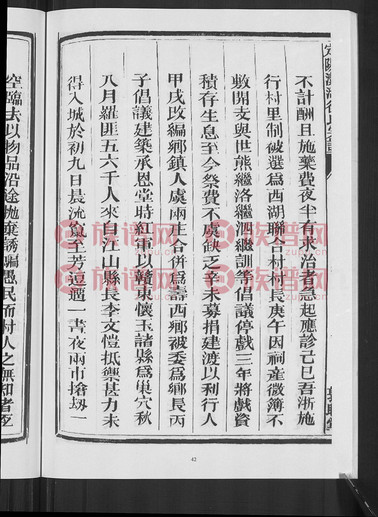 不計酬且施藥費夜半有求治者急起應診己巳吾浙施
行村里制被選爲西湖聯合村村長庚午因祠產微簿不
敷開支與世熊繼洛繼泗繼訓等倡議停戲三年將戲資
積存生息至今祭費不虞缺乏辛未募捐建渡以利行人
甲戌改編鄉鎮人虞兩庄合併爲壽西鄉被委爲鄉長丙
子倡議建築承恩堂時紅軍以贛東懷玉諸縣爲巢穴秋
八月羅匪五六千人來自江山縣長李文愷抵禦甚力未
得入城於初九日晨流竄至芳逗遛一晝夜兩市搶刧一
空臨去以物品沿途拋棄誘騙愚民而村人之無知者至
42